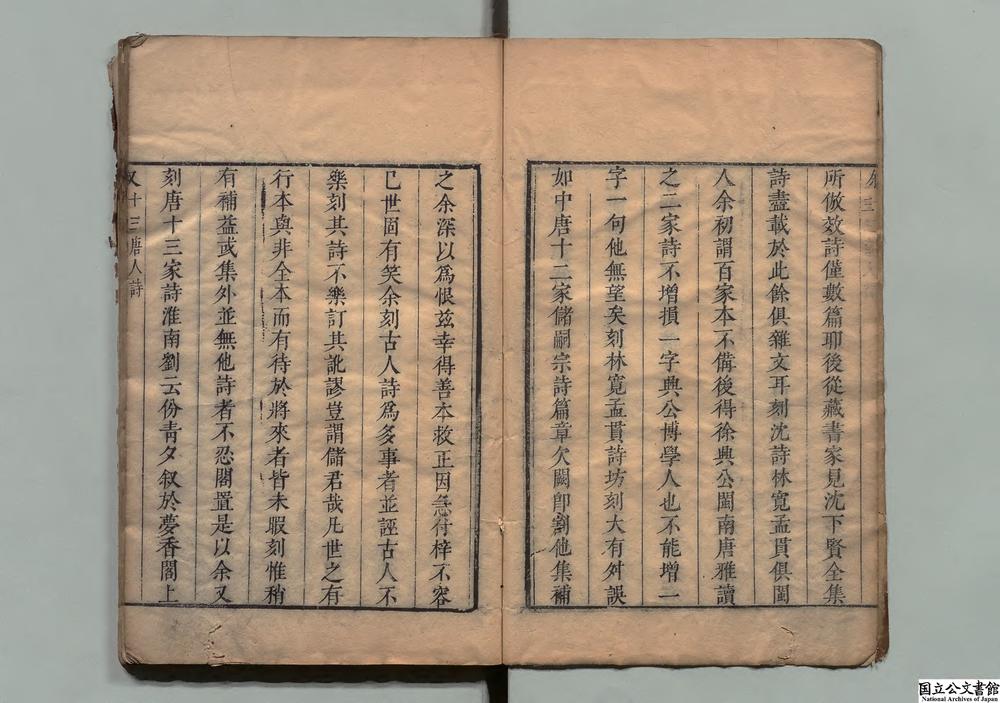 所倣效詩僅數篇耶後從藏書家見沈下賢全集
詩盡載於此餘俱雜文耳刻沈詩林寬孟貫俱閩
人余初謂百家本不備後得徐興公閩南唐雅讀
之二家詩不增損一字興公博學人也不能增一
字一句他無望矣刻林寬孟貫詩坊刻大有舛誤
如中唐十二家儲嗣宗詩篇章欠闕卽劉他集補
之余深以爲恨茲幸得善本救正因急付梓不容
已世固有笑余刻古人詩爲多事者並誣古人不
樂刻其詩不樂訂其訛謬豈謂儲君哉凡世之有
行本與非全本而有待於將來者皆未暇刻惟稍
有補益或集外並無他詩者不忍閣置是以余又
刻唐十三家詩淮南劉云份青夕叙於夢香閣上
又十三唐人詩
国立公文書館
National Archives of Japan